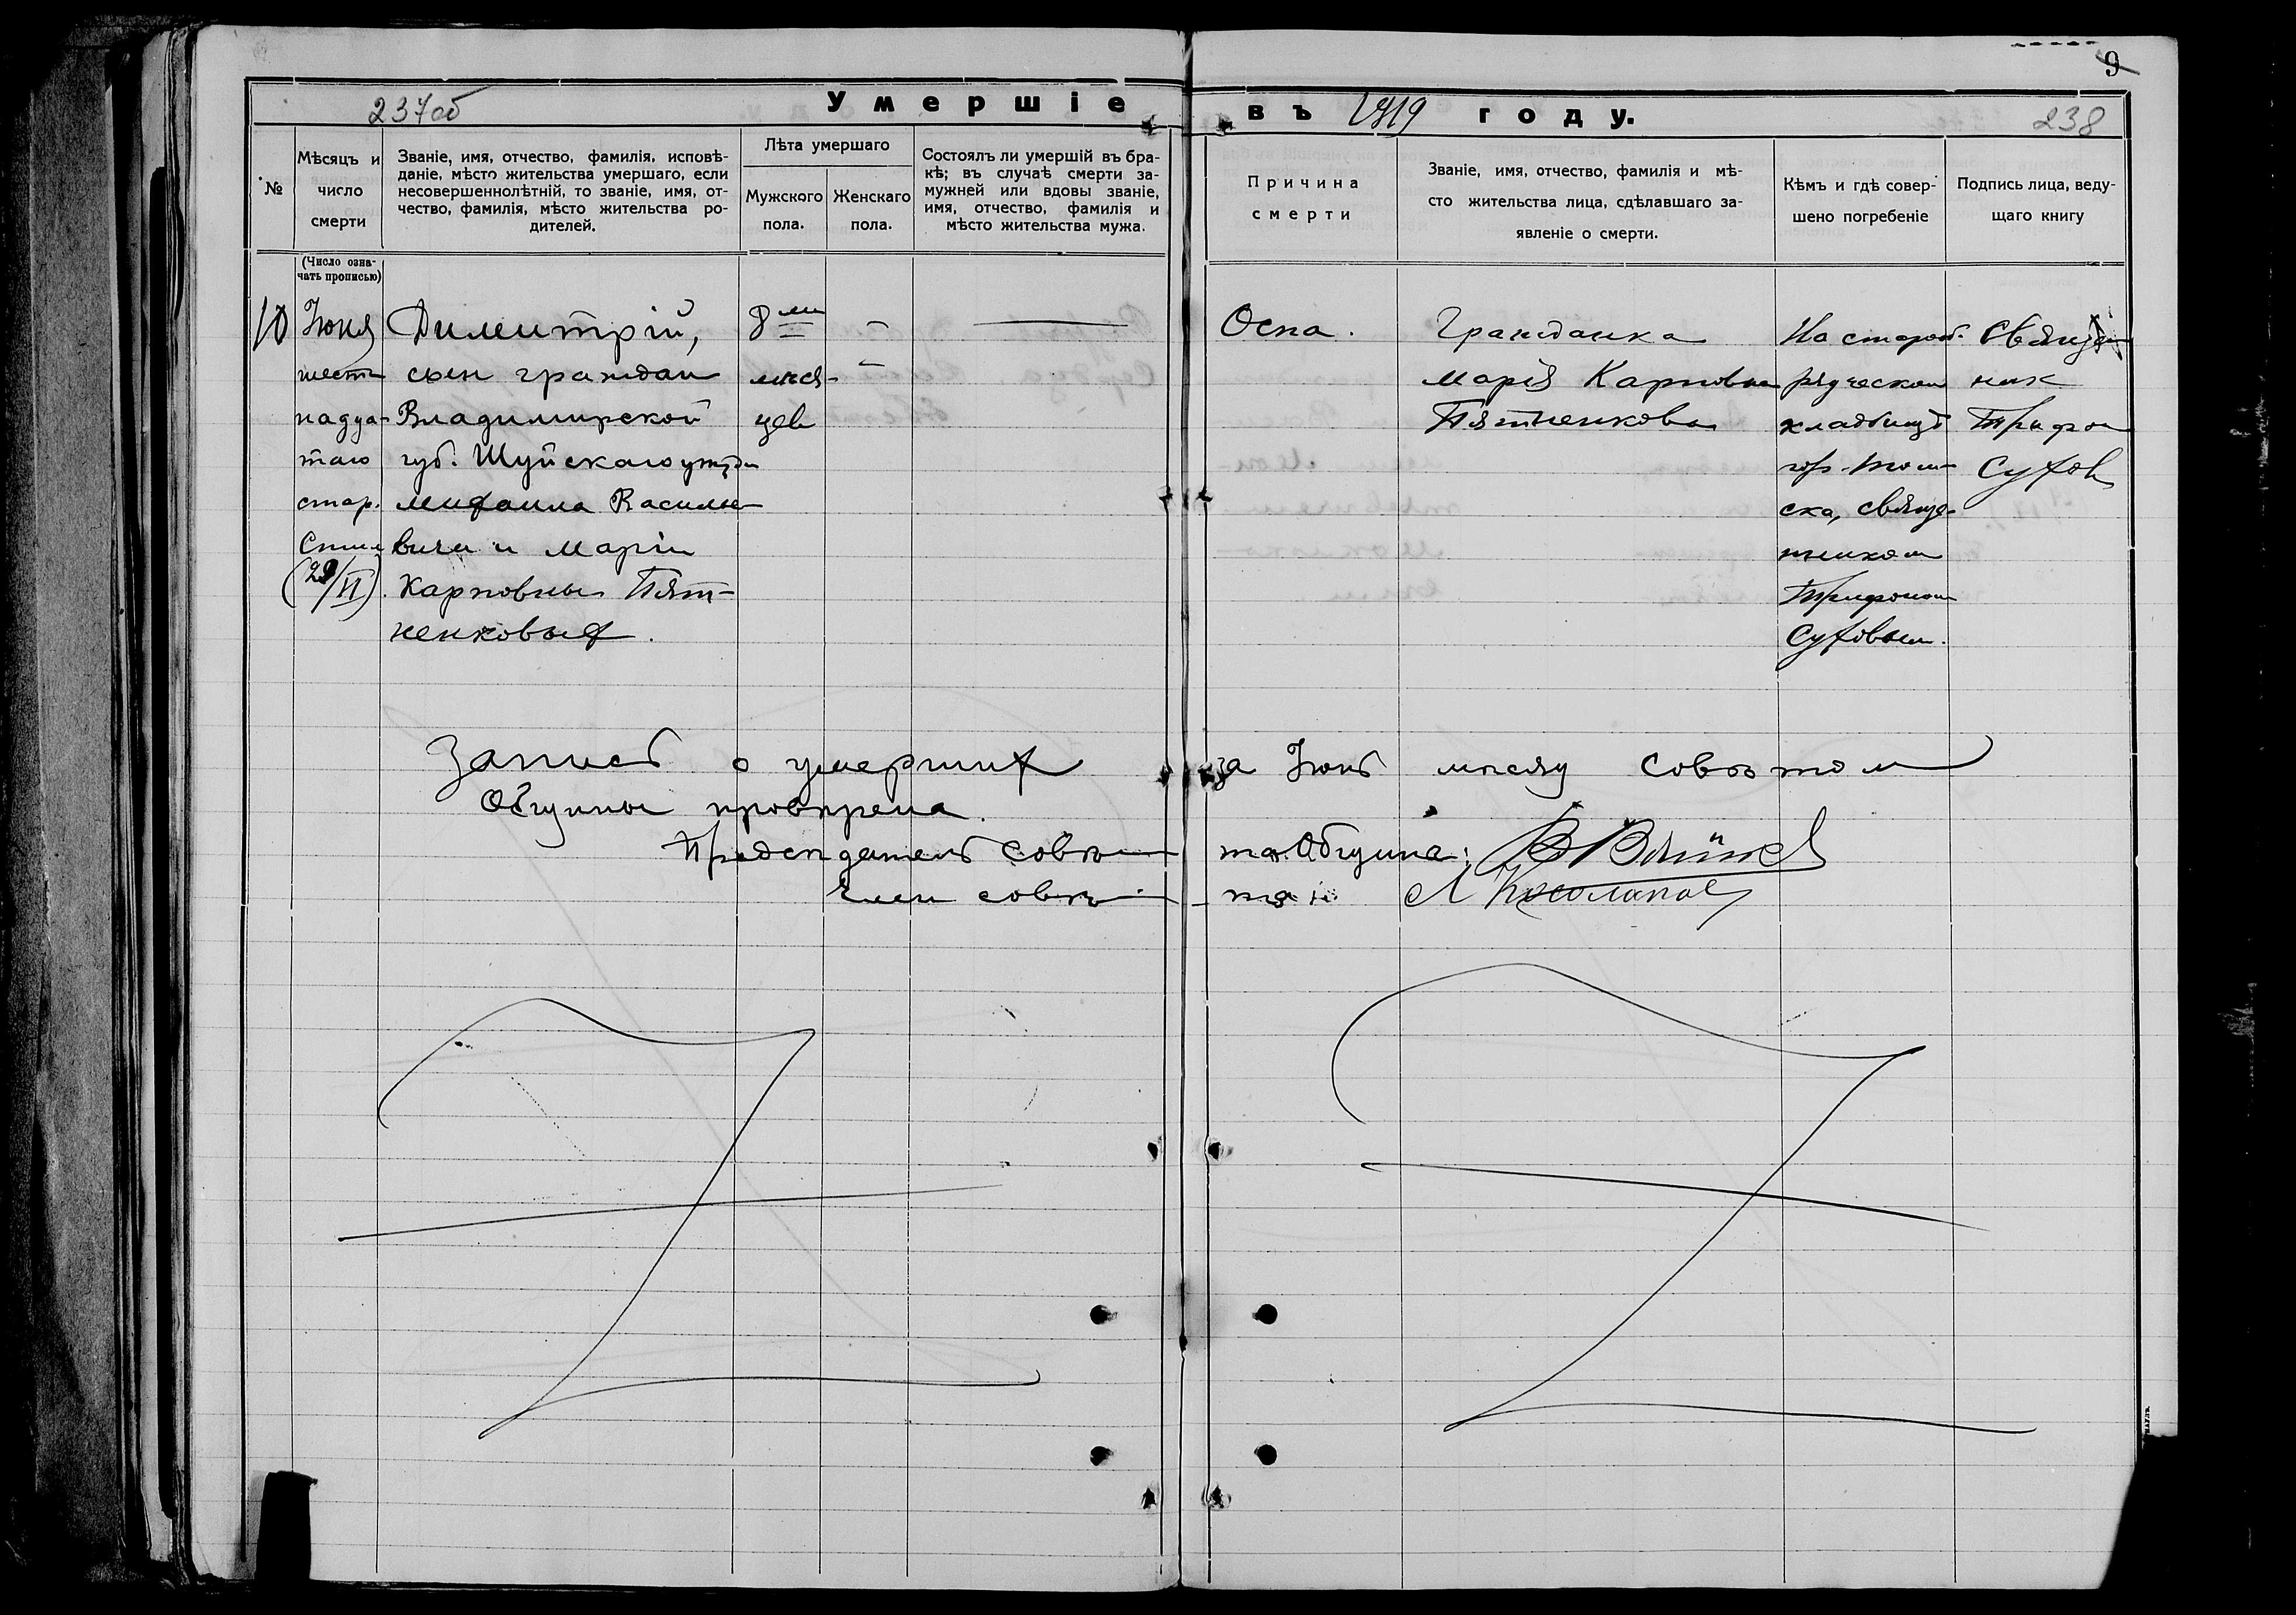 9
237об
Умершіе
въ 1919 году.
238
№
Мѣсяцъ и
число
смерти
Званіе, имя, отчество, фамилія, исповѣ-
даніе, мѣсто жительства умершаго, если
несовершеннолѣтній, то званіе, имя, от-
чество, фамилія, мѣсто жительства ро-
дителей.
Лѣта умершаго
Мужского
пола.
Женскаго
пола.
Состоялъ ли умершій въ бра-
кѣ; въ случаѣ смерти за-
мужней или вдовы званіе,
имя, отчество, фамилія и
мѣсто жительства мужа.
Причина
смерти
Званіе, имя, отчество, фамилія и мѣ-
сто жительства лица, сдѣлавшаго за-
явленіе о смерти.
Кѣмъ и гдѣ совер-
шено погребеніе
Подпись лица, веду-
щаго книгу
(Число озна-
чать прописью)
10
Іюня
шест-
надца-
таго
стар.
стиля
Димитрій,
сын граждан
Владимирской
губ. Шуйскаго уѣзда
Михаила Василье-
вича и Маріи
Карповны Пят-
ненковых.
8ми
мѣся-
цев
Оспа.
Гражданка
Марія Карповна
Пятненкова
На староб-
рядческом
кладбищѣ
гор. Том-
ска, священ-
ником
Трифоном
Суховым.
Священ-
ник
Трифон
Сухов
Запись о умерших за Іюнь мѣсяц Совѣтом
Общины провѣрена.
Предсѣдатель Совѣ-та Общины:
Член совѣ-та: Л Косолапов